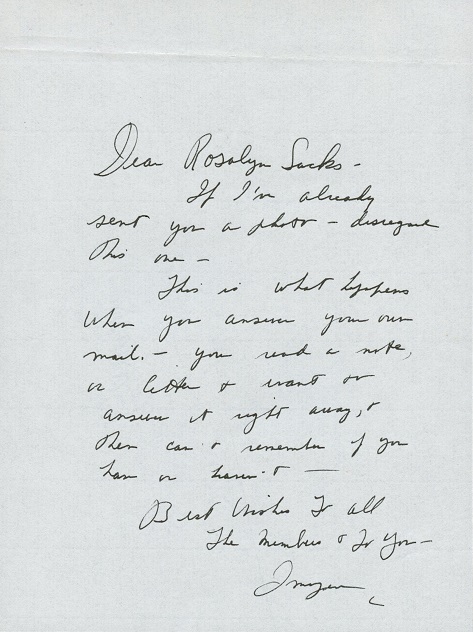 Dear Rosalyn Sacks -
If I'm already
sent you a photo - disregard
this one -
This is what happens
when you answer your own
mail. - you read a note,
or letter & want to
answer it right away, &
then can't remember if you
have or haven't -
Best Wishes to all
the members & to you -
Imogene